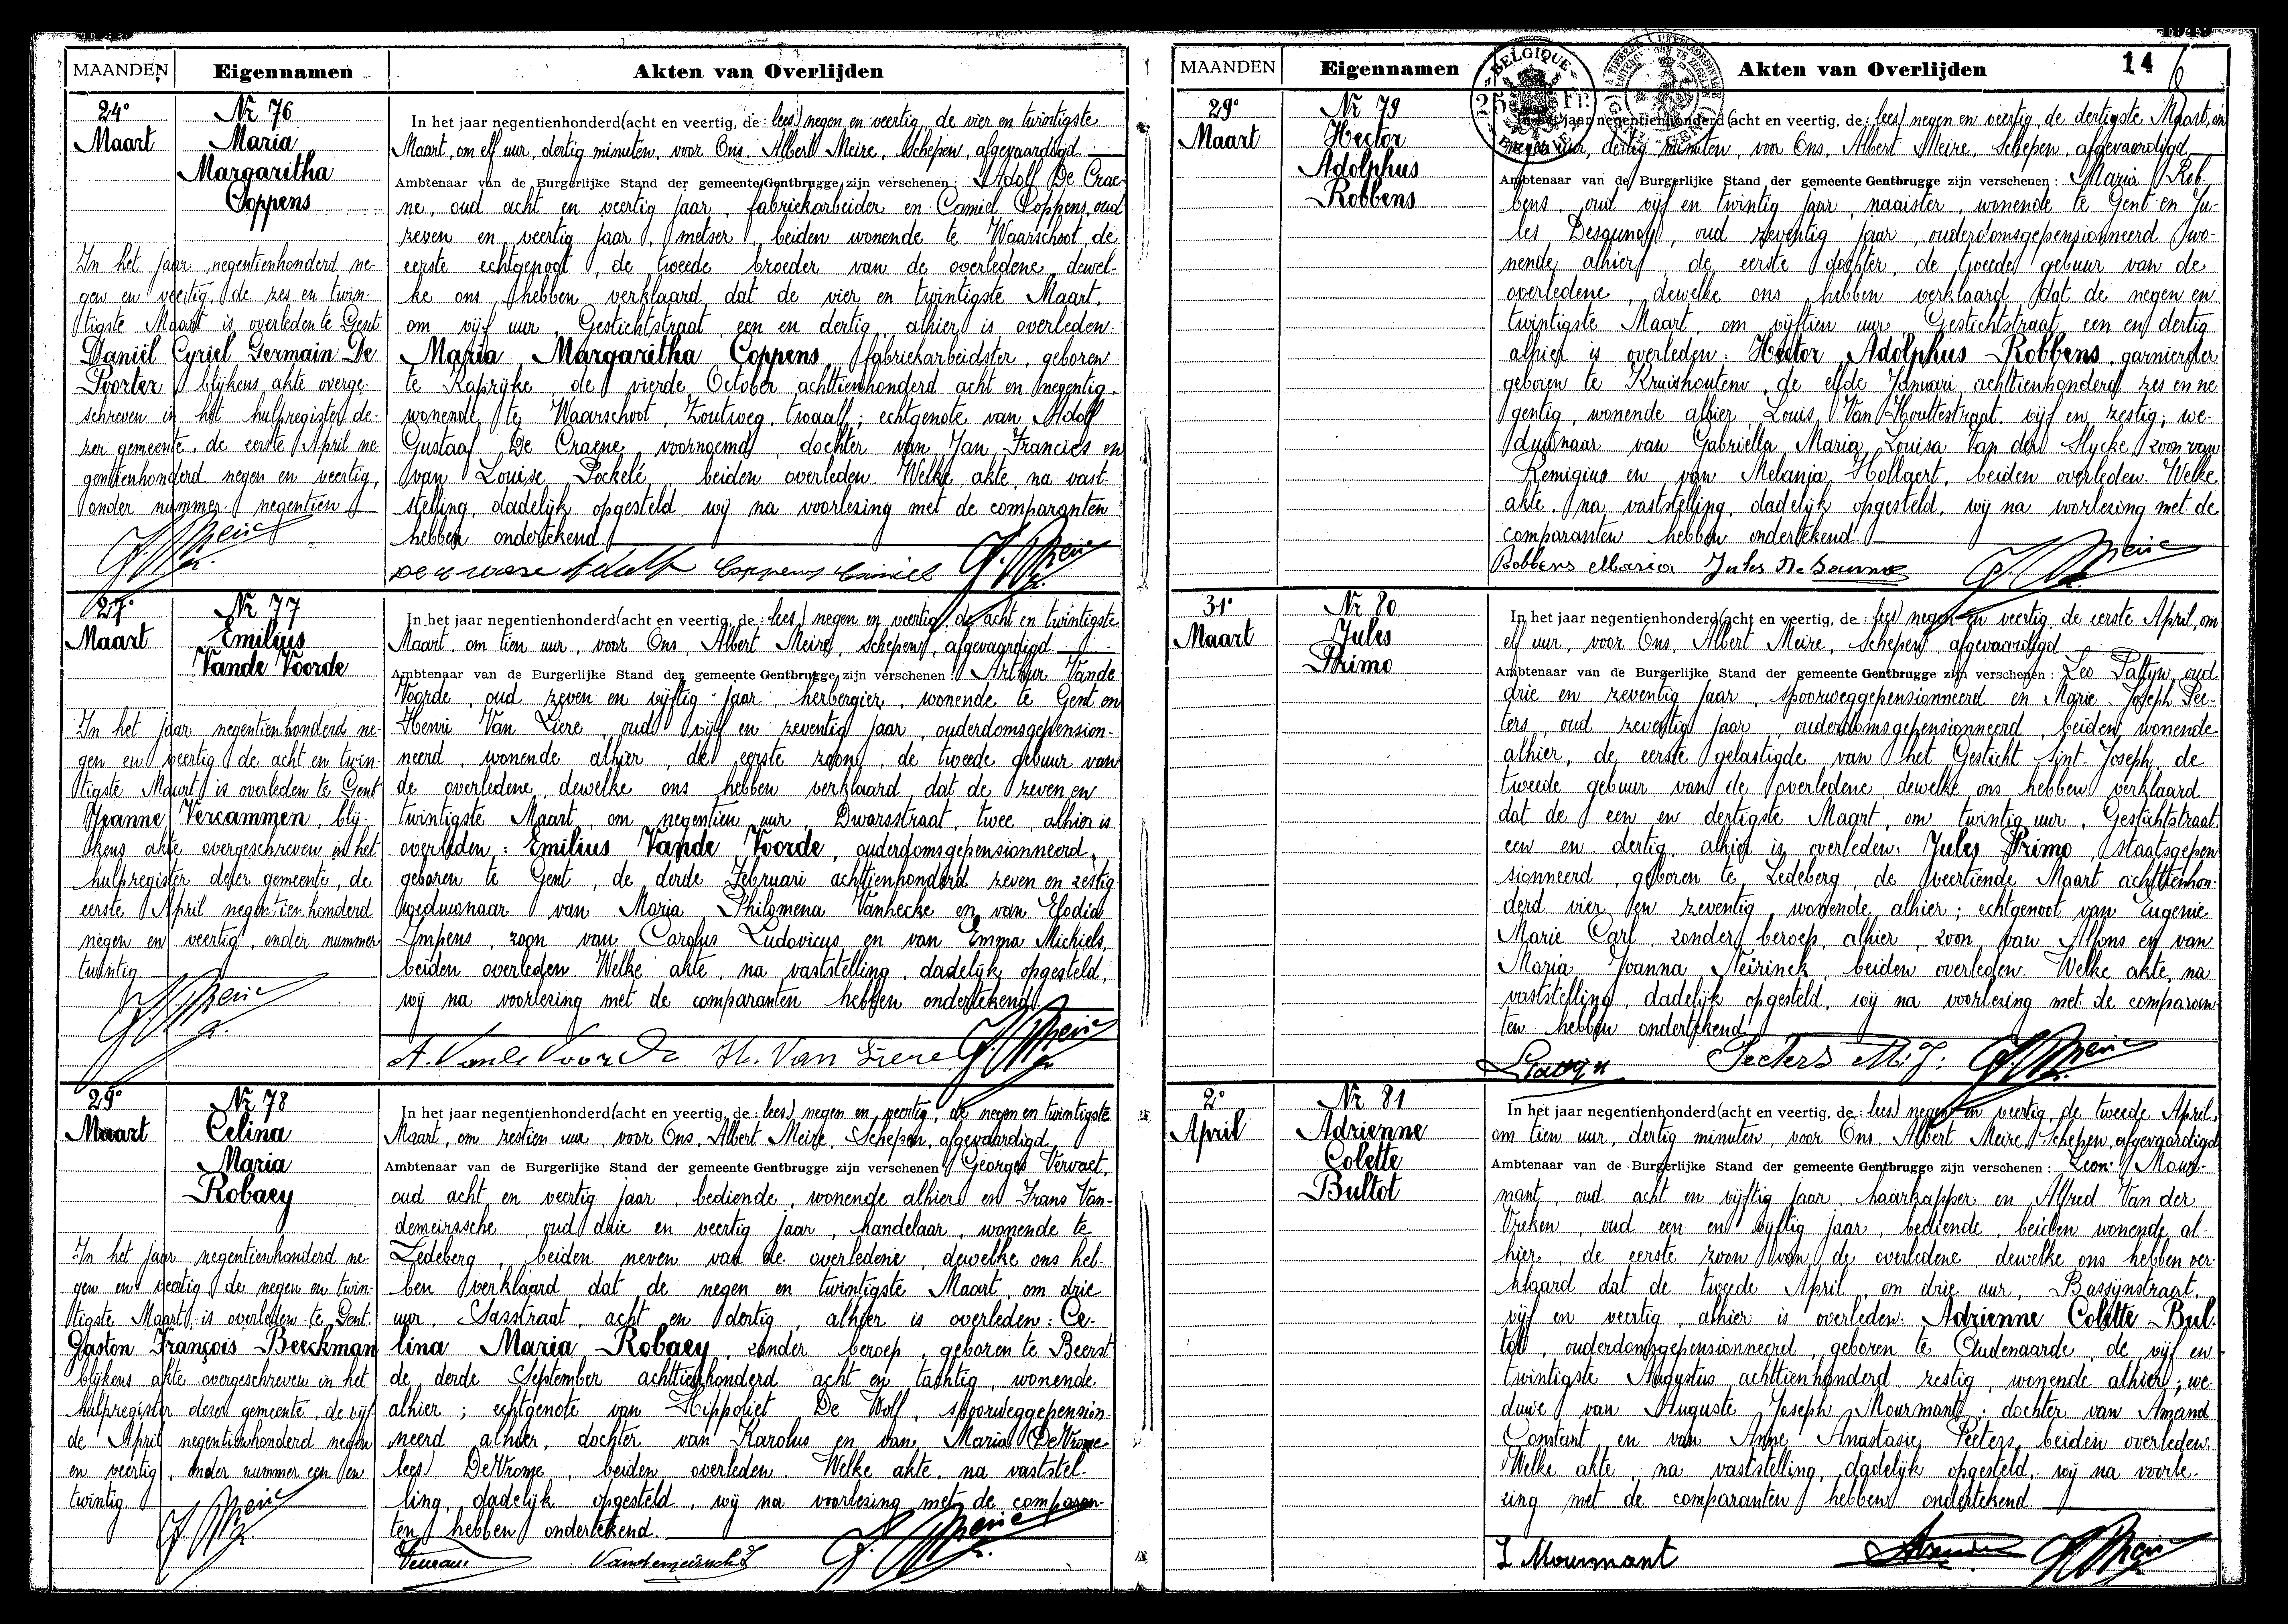 1949
MAANDEN Eigennamen Akten van Overlijden
24° Maart
Nr 76
Maria
Margaritha
Coppens
In het jaar negentienhonderd (acht en veertig, de: lees) negen en veertig, de vier en twintigste
Maart, om elf uur, dertig minuten, voor Ons, Albert Meire, Schepen, afgevaardigd
Ambtenaar van de Burgerlijke Stand der gemeente Gentbrugge zijn verschenen: Adolf De Crae-
ne, oud acht en veertig jaar, fabriekarbeider en Camiel Coppens, oud
zeven en veertig jaar, metser, beiden wonende te Waarschoot, de
eerste echtgenoot, de tweede broeder van de overledene, dewel-
ke ons hebben verklaard dat de vier en twintigste Maart,
om vijf uur, Gestichtstraat, een en dertig, alhier is overleden:
Maria Margaritha Coppens, fabriekarbeidster, geboren
te Kaprijke de vierde October achttienhonderd acht en negentig,
wonende te Waarschoot, Zoutweg, twaalf; echtgenote van Adolf
Gustaaf De Craene, voornoemd, dochter van Jan Francies en
van Louise Pockelé, beiden overleden. Welke akte, na vast-
stelling, dadelijk opgesteld, wij na voorlezing met de comparanten
hebben ondertekend.
Coppens Camiel
In het jaar negentienhonderd ne-
gen en veertig, de zes en twin-
tigste Maart is overleden te Gent
Daniël Cyriel Germain De
Poorter blijkens akte overge-
schreven in het hulpregister de-
zer gemeente, de eerste April ne-
gentienhonderd negen en veertig,
onder nummer negentien
27° Maart
Nr 77
Emilius
Vande Voorde
In het jaar negentienhonderd (acht en veertig, de: lees) negen en veertig, de acht en twintigste
Maart, om tien uur, voor Ons, Albert Meire, Schepen, afgevaardigd
Ambtenaar van de Burgerlijke Stand der gemeente Gentbrugge zijn verschenen: Arthur Vande
Voorde, oud zeven en vijftig jaar, herbergier, wonende te Gent en
Henri Van Liere, oud vijf en zeventig jaar, ouderdomsgepension-
neerd, wonende alhier, de eerste zoon, de tweede gebuur van
de overledene, dewelke ons hebben verklaard, dat de zeven en
twintigste Maart, om negentien uur, Dwarsstraat, twee, alhier is
overleden: Emilius Vande Voorde, ouderdomsgepensionneerd,
geboren te Gent, de derde Februari achttienhonderd zeven en zestig
weduwnaar van Maria Philomena Vanhecke en van Elodia
Impens, zoon van Carolus Ludovicus en van Emma Michiels,
beiden overleden. Welke akte, na vaststelling, dadelijk opgesteld,
wij na voorlezing met de comparanten hebben ondertekend.
A. Vande Voorde H. Van Liere
In het jaar negentienhonderd ne-
gen en veertig de acht en twin-
tigste Maart is overleden te Gent
Jeanne Vercammen, blij-
kens akte overgeschreven in het
hulpregister dezer gemeente, de
eerste April negentienhonderd
negen en veertig, onder nummer
twintig
29° Maart
Nr 78
Celina
Maria
Robaey
In het jaar negentienhonderd (acht en veertig, de: lees) negen en veertig, de negen en twintigste
Maart, om zestien uur, voor Ons, Albert Meire, Schepen, afgevaardigd
Ambtenaar van de Burgerlijke Stand der gemeente Gentbrugge zijn verschenen: Georges Vervaet,
oud acht en veertig jaar, bediende, wonende alhier en Frans Van-
demeirssche, oud drie en veertig jaar, handelaar, wonende te
Ledeberg, beiden neven van de overledene, dewelke ons heb-
ben verklaard dat de negen en twintigste Maart, om drie
uur, Sasstraat, acht en dertig, alhier is overleden: Ce-
lina Maria Robaey, zonder beroep, geboren te Beerst
de derde September achttienhonderd acht en tachtig, wonende
alhier; echtgenote van Hippoliet De Wolf, spoorweggepension-
neerd alhier, dochter van Karolus en van Maria De Vrome
lees) De Vrome, beiden overleden. Welke akte, na vaststel-
ling, dadelijk opgesteld, wij na voorlezing met de comparan-
ten hebben ondertekend.
In het jaar negentienhonderd ne-
gen en veertig de negen en twin-
tigste Maart, is overleden te Gent
Gaston François Beeckman
blijkens akte overgeschreven in het
hulpregister dezer gemeente, de vijf-
de April negentienhonderd negen
en veertig, onder nummer een en
twintig.
MAANDEN Eigennamen Akten van Overlijden 14
BELGIQUE
25 Fr.
29° Maart
Nr 79
Hector
Adolphus
Robbens
In het jaar negentienhonderd (acht en veertig, de: lees) negen en veertig, de dertigste Maart, om
negen uur, dertig minuten, voor Ons, Albert Meire, Schepen, afgevaardigd
Ambtenaar van de Burgerlijke Stand der gemeente Gentbrugge zijn verschenen: Maria Rob-
bens, oud vijf en twintig jaar, naaister, wonende te Gent en Ju-
les, oud zeventig jaar, ouderdomsgepensionneerd, wo-
nende alhier, de eerste dochter, de tweede gebuur van de
overledene, dewelke ons hebben verklaard dat de negen en
twintigste Maart, om vijftien uur, Gestichtstraat, een en dertig
alhier is overleden: Hector Adolphus Robbens, garnierder
geboren te Kruishoutem, de elfde Januari achttienhonderd zes en ne-
gentig, wonende alhier, Louis Van Houttestraat, vijf en zestig; we-
duwnaar van Gabriella Maria Louisa Van der Slycke, zoon van
Remigius en van Melania Hollaert, beiden overleden. Welke
akte, na vaststelling, dadelijk opgesteld, wij na voorlezing met de
comparanten hebben ondertekend.
Robbens Maria Jules
31° Maart
Nr 80
Jules
Primo
In het jaar negentienhonderd (acht en veertig, de: lees) negen en veertig, de eerste April, om
elf uur, voor Ons, Albert Meire, Schepen, afgevaardigd
Ambtenaar van de Burgerlijke Stand der gemeente Gentbrugge zijn verschenen: Leo Pattyn, oud
drie en zeventig jaar, spoorweggepensionneerd en Marie Joseph Pee-
ters, oud zeventig jaar, ouderdomsgepensionneerd, beiden wonende
alhier, de eerste gelastigde van het Gesticht Sint Joseph, de
tweede gebuur van de overledene, dewelke ons hebben verklaard
dat de een en dertigste Maart, om twintig uur, Gestichtstraat,
een en dertig, alhier is overleden: Jules Primo, staatsgepen-
sionneerd, geboren te Ledeberg, de veertiende Maart achttienhon-
derd vier en zeventig, wonende alhier; echtgenoot van Eugenie
Marie Carl, zonder beroep, alhier, zoon van Alfons en van
Maria Joanna Neirinck, beiden overleden. Welke akte, na
vaststelling, dadelijk opgesteld, wij na voorlezing met de comparan-
ten hebben ondertekend.
Peeters M. J.
2° April
Nr 81
Adrienne
Colette
Bultot
In het jaar negentienhonderd (acht en veertig, de: lees) negen en veertig, de tweede April,
om tien uur, dertig minuten, voor Ons, Albert Meire, Schepen, afgevaardigd
Ambtenaar van de Burgerlijke Stand der gemeente Gentbrugge zijn verschenen: Leon Mour-
mant, oud acht en vijftig jaar, haarkapper en Alfred Van der
Vreken, oud een en vijftig jaar, bediende, beiden wonende al-
hier, de eerste zoon van de overledene, dewelke ons hebben ver-
klaard dat de tweede April, om drie uur, Bassijnstraat,
vijf en veertig alhier is overleden: Adrienne Colette Bul-
tot, ouderdomsgepensionneerd, geboren te Oudenaarde, de vijf en
twintigste Augustus achttienhonderd zestig, wonende alhier; we-
duwe van Auguste Joseph Mourmant, dochter van Amand
Constant en van Anne Anastasie Peeters, beiden overleden.
Welke akte, na vaststelling, dadelijk opgesteld, wij na voorle-
zing met de comparanten hebben ondertekend.
L Mourmant